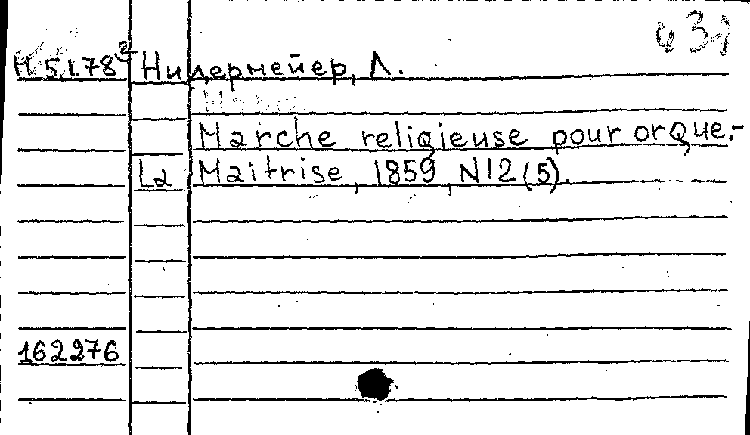 431
М 5.178² Нидермейер, Л.
Marche religieuse pour orque.-
La Maitrise, 1859, N12(5).
162276